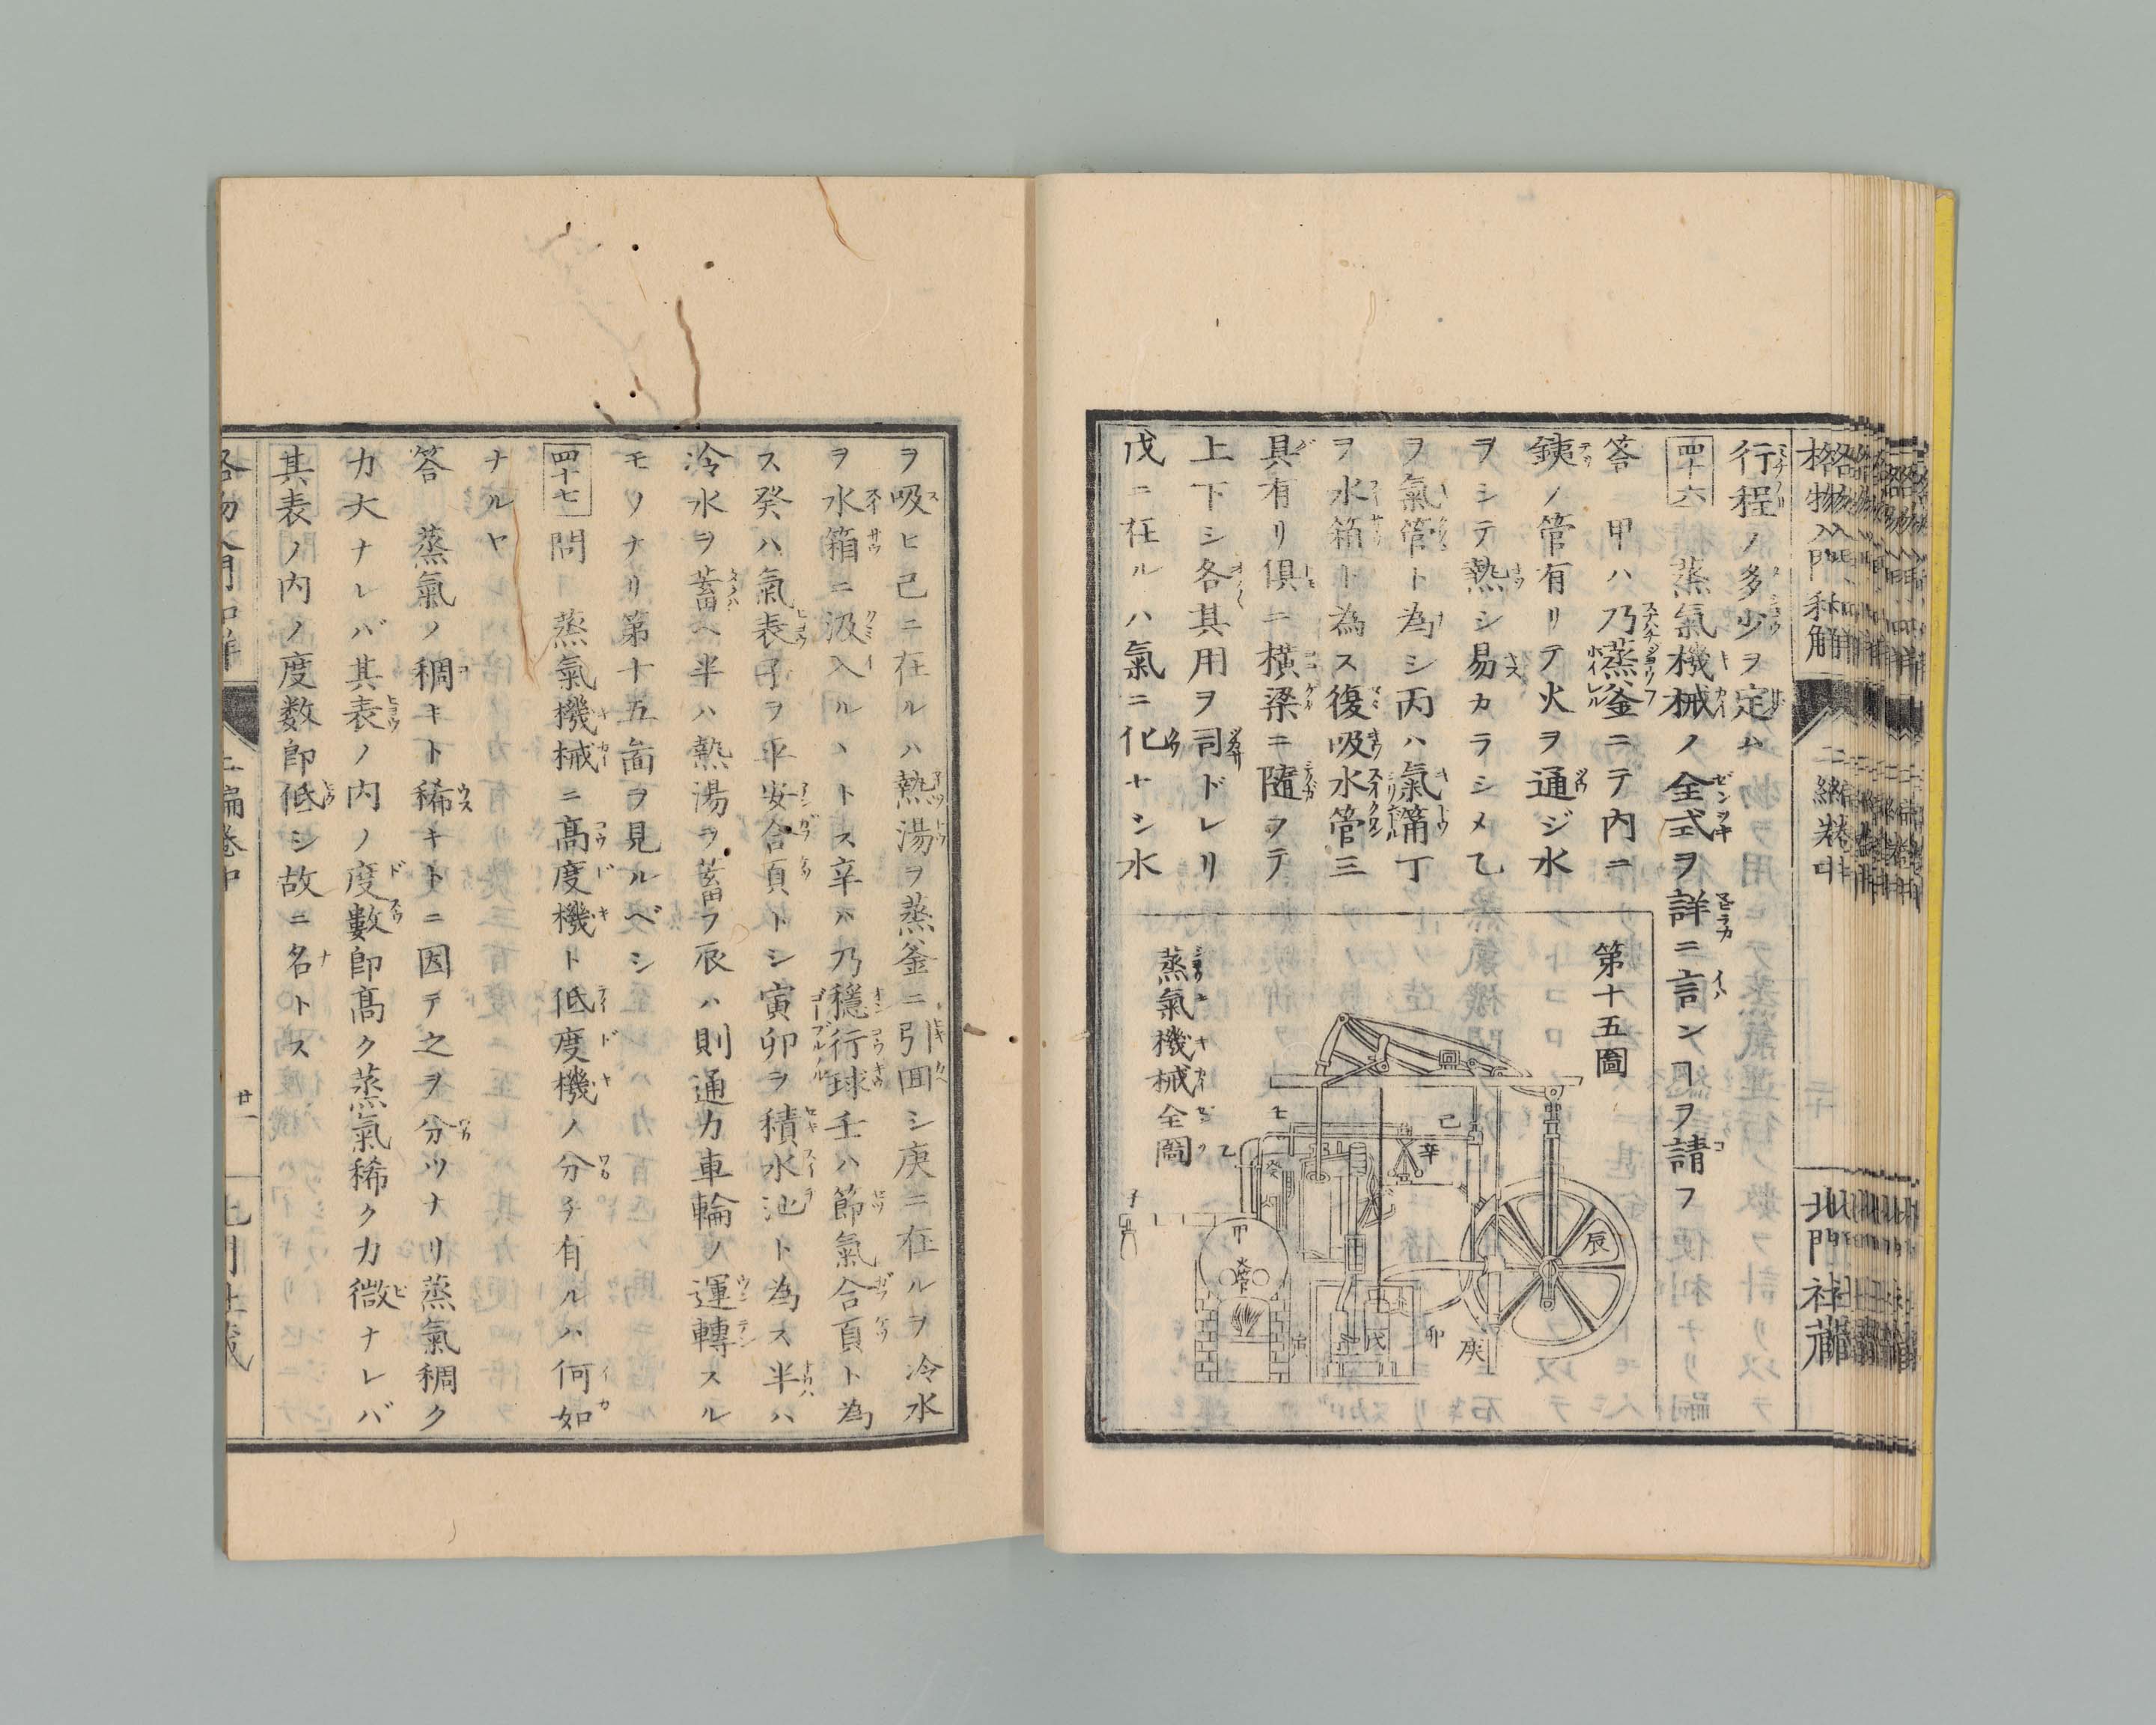 格物入門和解
二編巻中
北門社藏
行程ノ多少ヲ定ム
四十六 蒸氣機械ノ全式ヲ詳ニ言ンヿヲ請フ
答 甲ハ乃蒸釜ニテ内ニ
銕ノ管有リテ火ヲ通ジ水
ヲシテ熱シ易カラシメ乙
ヲ氣管ト為シ丙ハ氣筩丁
ヲ水箱ト為ス復吸水管三
具有リ倶ニ横梁ニ隨ヲテ
上下シ各其用ヲ司ドレリ
戊ニ在ルハ氣ニ化ナシ水
第十五圖
蒸氣機械全圖
七
己
乙
辛
癸
子
甲
辰
戊
卯
庚
寅
ヲ吸ヒ己ニ在ルハ熱湯ヲ蒸釜ニ引囬シ庚ニ在ルヲ冷水
ヲ水箱ニ汲入ルヽトス辛ハ乃穩行球壬ハ節氣合頁ト為
ス癸ハ氣表子ヲ平安合頁トシ寅卯ヲ積水池ト為ス半ハ
冷水ヲ蓄ヘ半ハ熱湯ヲ蓄フ辰ハ則通力車輪ノ運轉スル
モノナリ第十五啚ヲ見ルベシ
四十七 問 蒸氣機械ニ髙度機ト低度機ノ分チ有ルハ何如
ナルヤ
答 蒸氣ノ稠キト稀キトニ因テ之ヲ分ツナリ蒸氣稠ク
力大ナレバ其表ノ内ノ度數即髙ク蒸氣稀ク力微ナレバ
其表ノ内ノ度数即低シ故ニ名トス
廿一